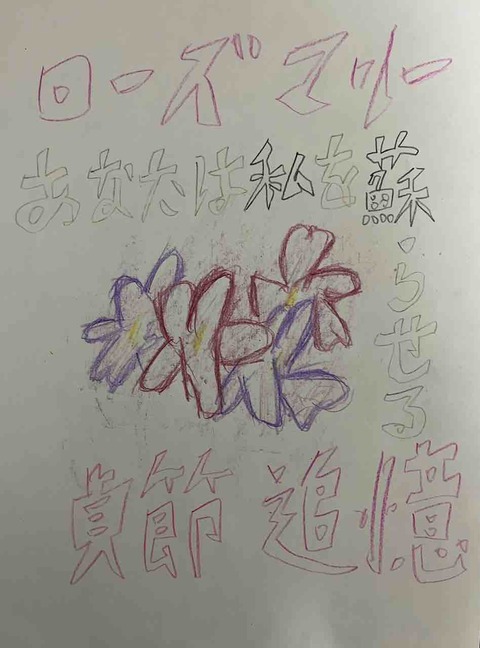 ローズマリー
あなたは私を蘇
らせる
貞節 追憶